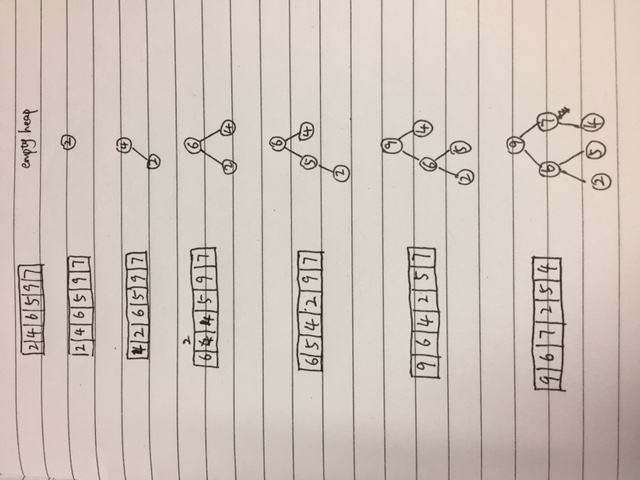 2 4 6 5 9 7 empty heap
2 4 6 5 9 7 2
4 2 6 5 9 7 4
2
2 6
6 4 4 5 9 7 2 4
6
6 5 4 2 9 7 5 4
2
9
9 6 4 2 5 7 6 4
2 5
9
9 6 7 2 5 4 6 7
2 5 4